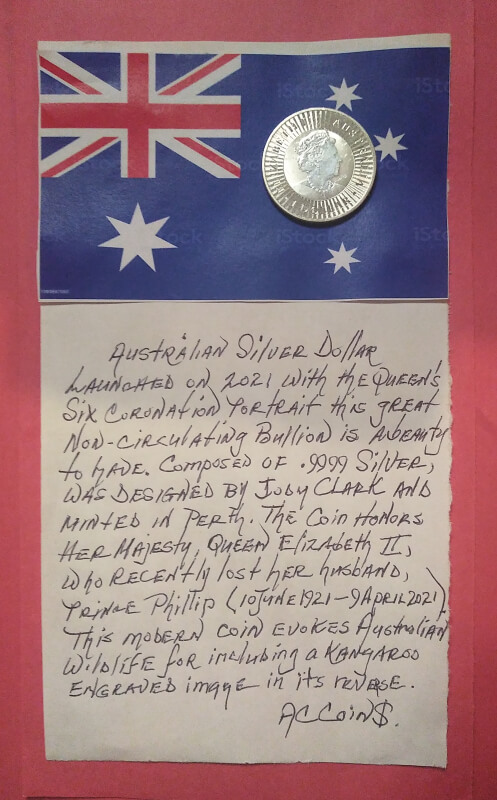 iStock
AUSTRALIAN SILVER DOLLAR
LAUNCHED ON 2021 WITH THE QUEEN'S
SIX CORONATION PORTRAIT THIS GREAT
NON-CIRCULATING BULLION IS A BEAUTY
TO HAVE. COMPOSED OF .9999 SILVER,
WAS DESIGNED BY JODY CLARK AND
MINTED IN PERTH. THE COIN HONORS
HER MAJESTY, QUEEN ELIZABETH II,
WHO RECENTLY LOST HER HUSBAND,
PRINCE PHILLIP (10 JUNE 1921-9 APRIL 2021)
THIS MODERN COIN EVOKES AUSTRALIAN
WILDLIFE FOR INCLUDING A KANGAROO
ENGRAVED IMAGE IN ITS REVERSE.
AC COIN$.